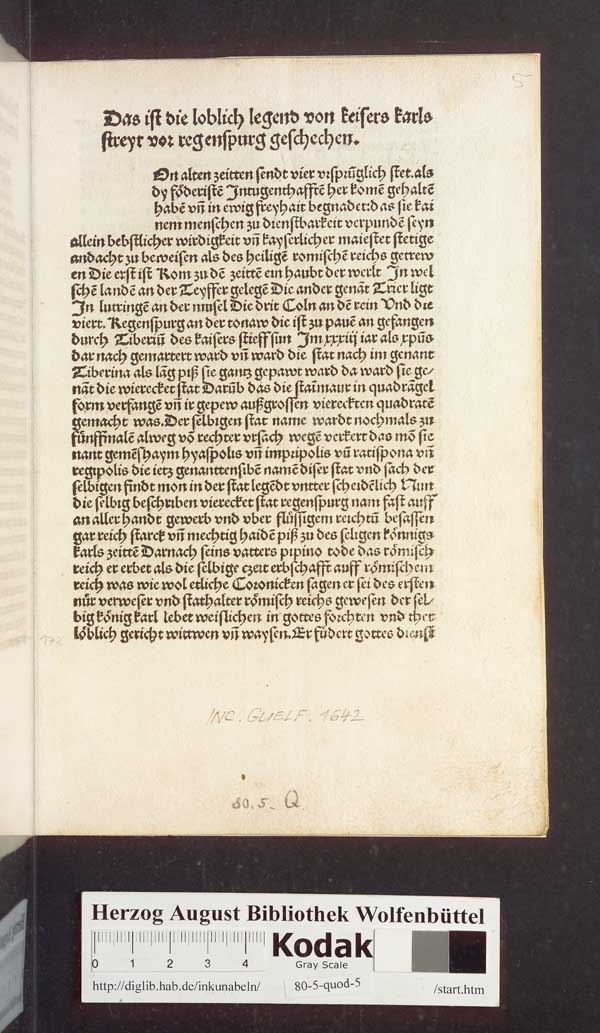 5
Das ist die loblich legend von keisers karls
streyt vor regenspurg geschechen.
On alten zeitten sendt vier vrsprũglich stet.als
dy föderistẽ Intugenthafftẽ her komẽ gehaltẽ
habẽ vñ in ewig freyhait begnadet:das sie kai
nem menschen zu dienstbarkeit verpundẽ seyn
allein bebstlicher wirdigkeit vñ kayserlicher maiestet stetige
andacht zu beweisen als des heiligẽ romischẽ reichs getrew
en Die erst ist Rom zu dẽ zeittẽ ein haubt der werlt In wel
schẽ landẽ an der Teyffer gelegẽ Die ander genãt Trier ligt
In lutringẽ an der musel Die drit Coln an dẽ rein Vnd die
viert. Regenspurg an der tonaw die ist zu pauẽ an gefangen
durch Tiberiũ des kaisers stieff sun Im xxxiij iar als xpũs
dar nach gemartert ward vñ ward die stat nach im genant
Tiberina als lãg piß sie gantz gepawt ward da ward sie ge⸗
nãt die wierecket stat Darũb das die statmaur in quadrãgel
form verfangẽ vñ ir gepew außgrossen viereckten quadratẽ
gemacht was.Der selbigen stat name wardt nochmals zu
fünffmalẽ alweg võ rechter vrsach wegẽ verkert das mõ sie
nant gemẽshaym hyaspolis vñ impripolis vñ ratispona vñ
regipolis die ietz genanttensibẽ namẽ diser stat vnd sach der
selbigen findt mon in der stat legẽdt vntter scheidẽlich Nun
die selbig beschriben vierecket stat regenspurg nam fast auff
an aller handt gewerb vnd vber flüssigem reichtũ besassen
gar reich starck vñ mechtig haidẽ piß zu des seligen kônnigs
karls zeittẽ Darnach seins vatters pipino tode das rômisch
reich er erbet als die selbige czeit erbschafft auff rômischem
reich was wie wol etliche Coronicken sagen er sei des ersten
nũr verweser vnd stathalter rômisch reichs gewesen der sel⸗
big kônig karl lebet weislichen in gottes forchten vnd thet
lôblich gericht wittwen vñ waysen.Er fũdert gottes dienst
172
INC. GUELF. 1642
80. 5. Q
Herzog August Bibliothek Wolfenbüttel
0 1 2 3 4
Kodak
Gray Scale
http://diglib.hab.de/inkunabeln/ 80-5-quod-5 /start.htm